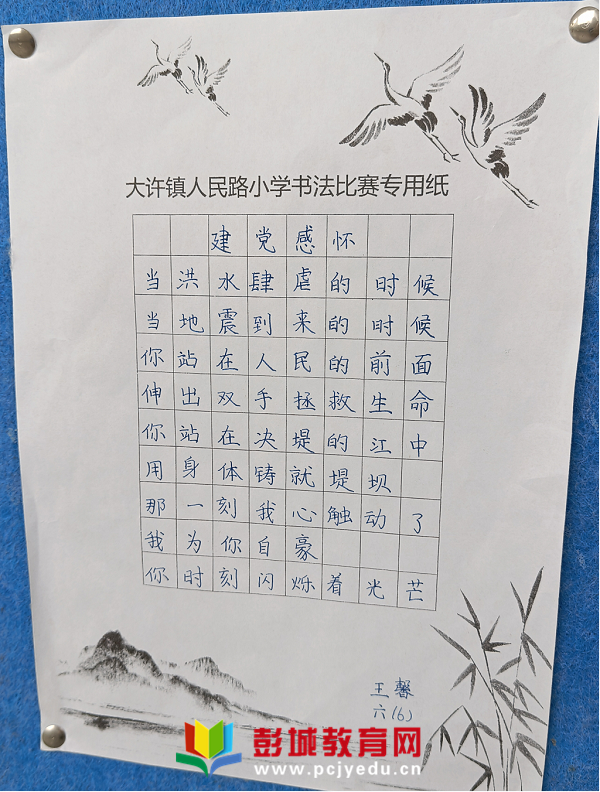 大许镇人民路小学书法比赛专用纸
建党感怀
当洪水肆虐的时候
当地震到来的时候
你站在人民的前面
伸出双手拯救生命
你站在决堤的江中
用身体铸就堤坝
那一刻我心触动了
我为你自豪
你时刻闪烁着光芒
王馨
六(6)
彭城教育网
www.pcjyedu.cn